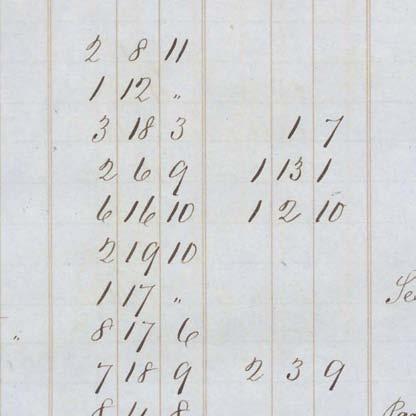 2 8 11
1 12 "
3 18 3 1 7
2 6 9 1 13 1
6 16 10 1 2 10
2 19 10
1 17 "
" 8 17 6
7 18 9 2 3 9